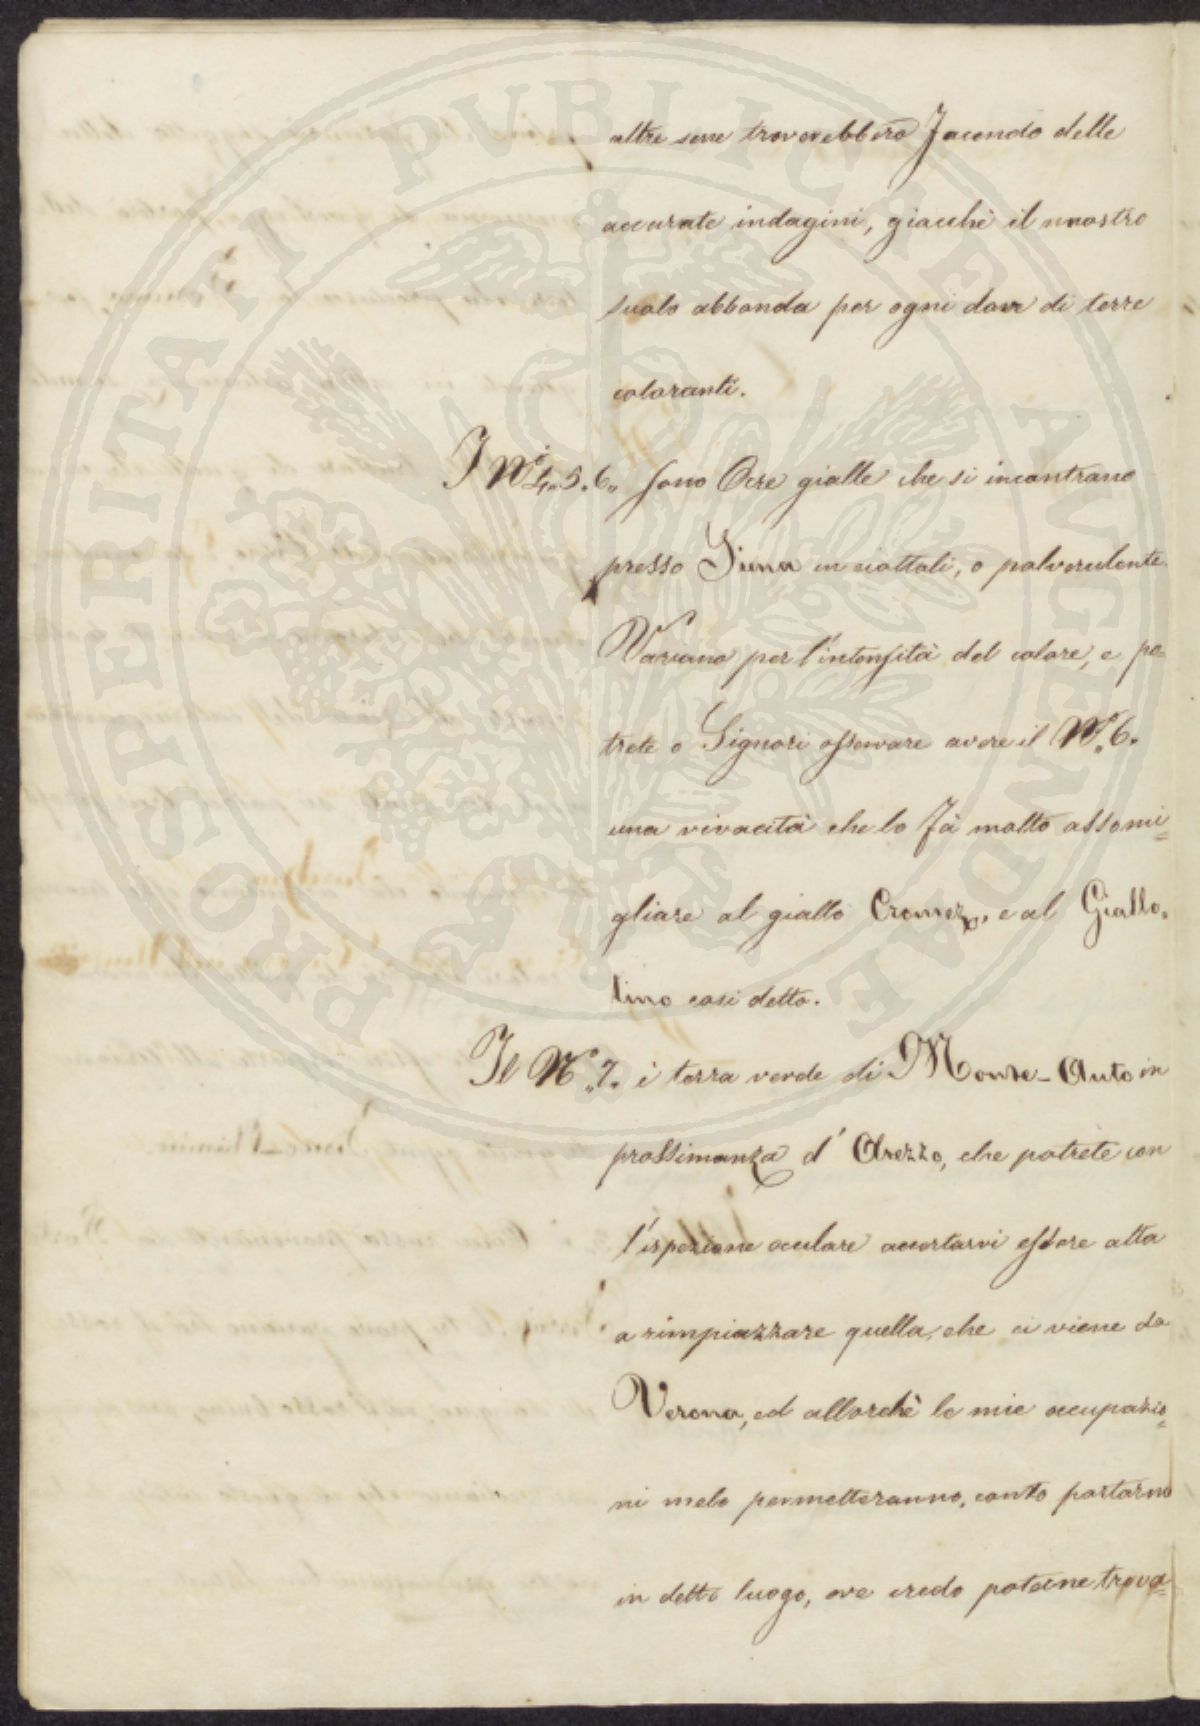 altre sene troverebbero facendo delle
accurate indagini, giacchè il nnostro
suolo abbonda per ogni dove di terre
coloranti.
I Ni. 4. 5. 6. sono Ocre gialle che si incontrano
presso Siena in ciottoli, o polverulente.
Variano per l'intensità del colore, e po=
trete o Signori osservare avere il No. 6.
una vivacità che lo fà molto assomi=
gliare al giallo e al Giallo=
lino così detto.
Il No. 7. è terra verde di Monte-Auto in
prossimanza d' Arezzo, che potrete con
l'ispezione oculare accertarvi essere atta
a rimpiazzare quella, che ci viene da
Verona, ed allorchè le mie occupazio=
ni melo permetteranno, conto portarmi
in detto luogo, ove credo poterne trova=
PROSPERITATI PUBLICAE AUGENDAE